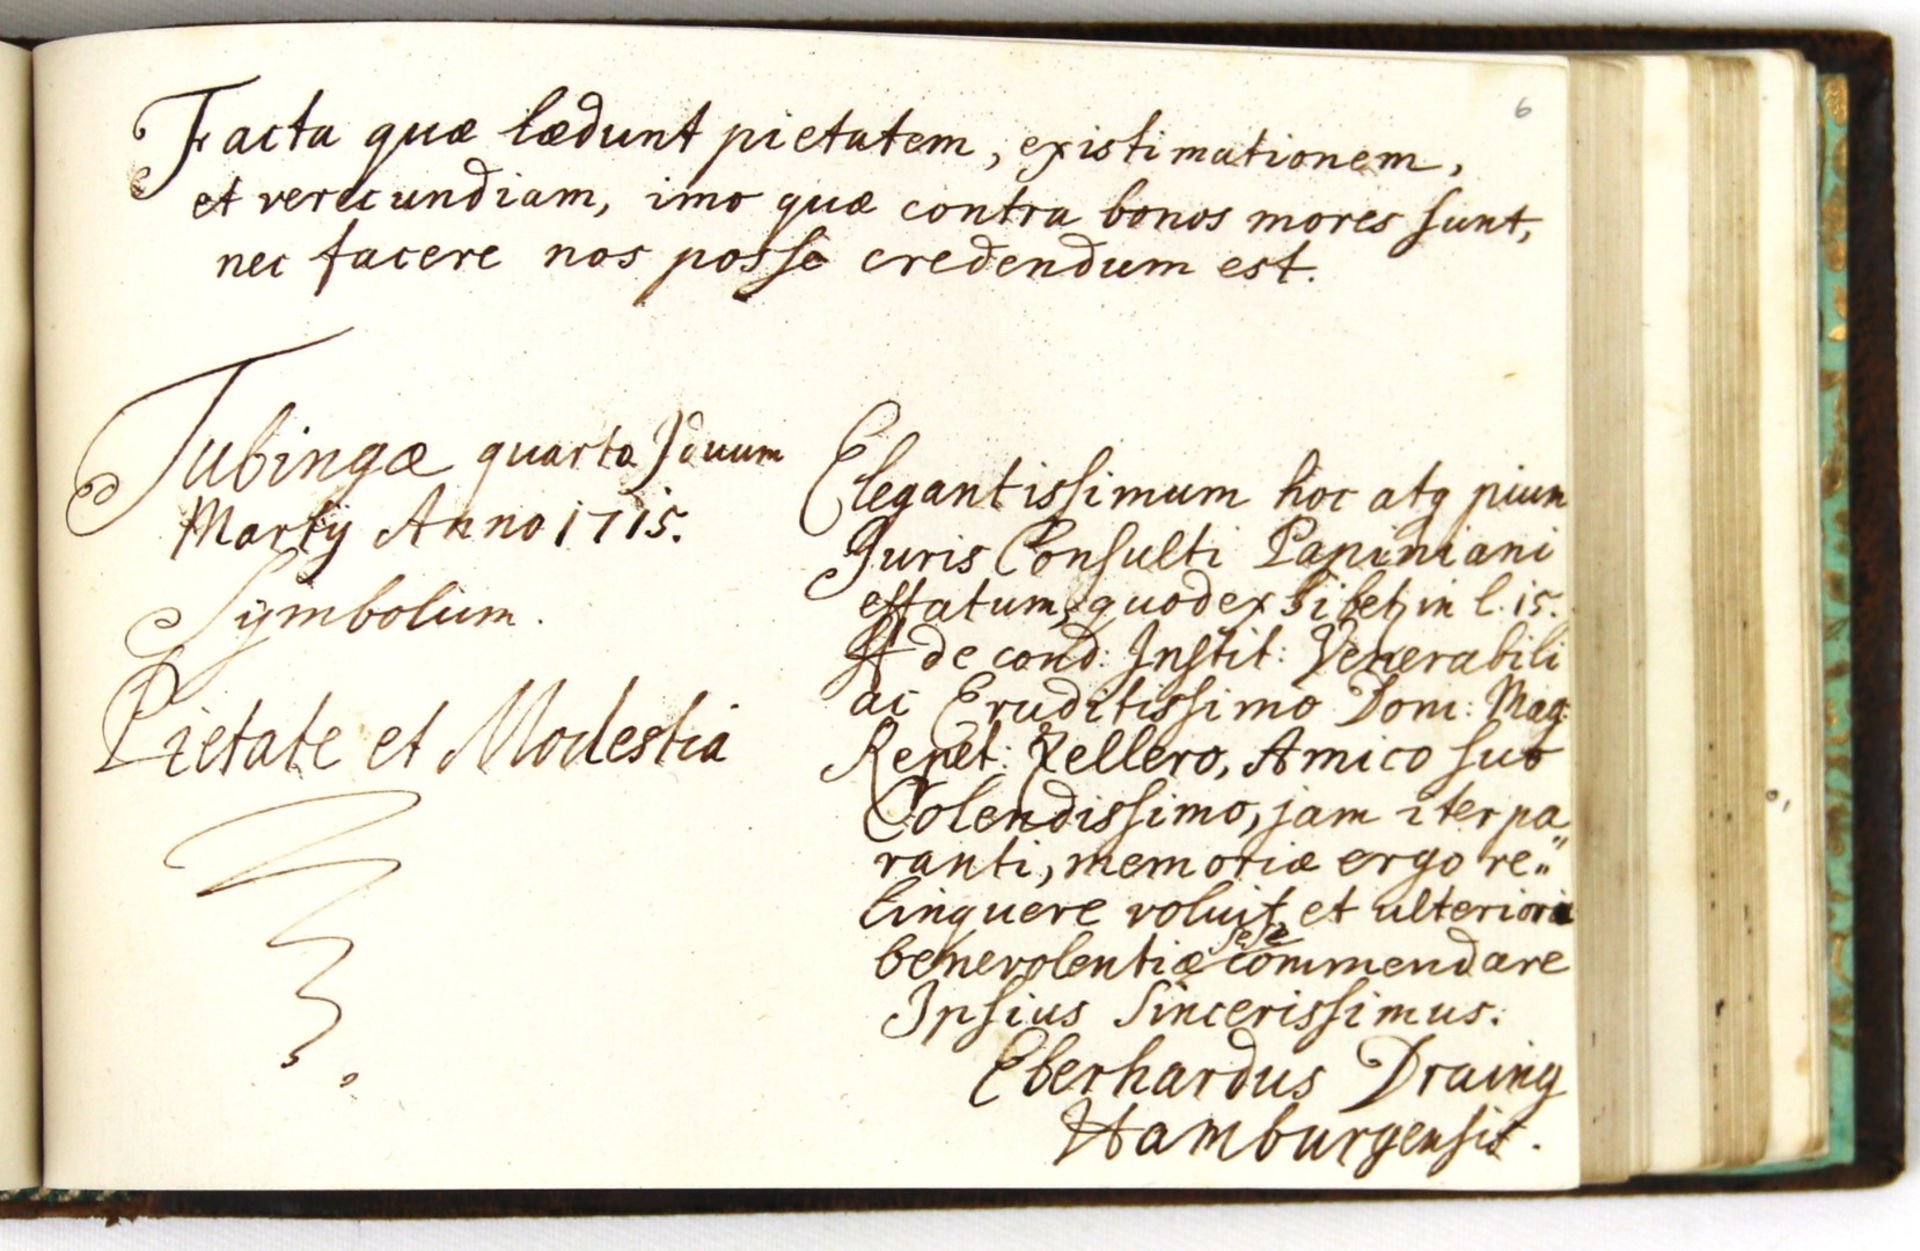 6
Facta quæ lædunt pietatem, existimationem,
et verecundiam, imo quæ contra bonos mores sunt,
nec facere nos posse credendum est.
Tubingæ quarta Iduum
Martij Anno 1715.
Symbolum.
Pietate et Modestia
Elegantissimum hoc atq pium
Juris Consulti Papiniani
effatum, quod exhibet in l. 15.
ff de cond: Instit: Venerabili
ac Eruditissimo Dom: Mag:
Repet: Zellero, Amico suo
Colendissimo, jam iter pa
ranti, memoriæ ergo re"
linquere voluit, et ulteriori
benevolentiæ sese commendare
Ipsius sincerissimus.
Eberhardus Draing
Hamburgensis.